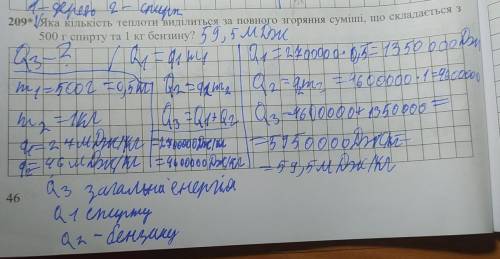 1 - дерево 2 - спирт
209*. Яка кількість теплоти виділиться за повного згоряння суміші, що складається з
500 г спирту та 1 кг бензину? 59,5 МДж
Q3-? Q1=q1m1 Q1=2700000·0,5=1350000Дж
m1=500г=0,5кг Q2=q2m2 Q2=q2m2=4600000·1=4600000
m2=1кг Q3=Q1+Q2 Q3=4600000+1350000=
q1=27МДж/кг =2700000Дж/кг =5950000Дж/кг=
q2=46МДж/кг =4600000Дж/кг =59,5МДж/кг
Q3 загальна енергія
46
Q1 спирту
Q2 - бензину